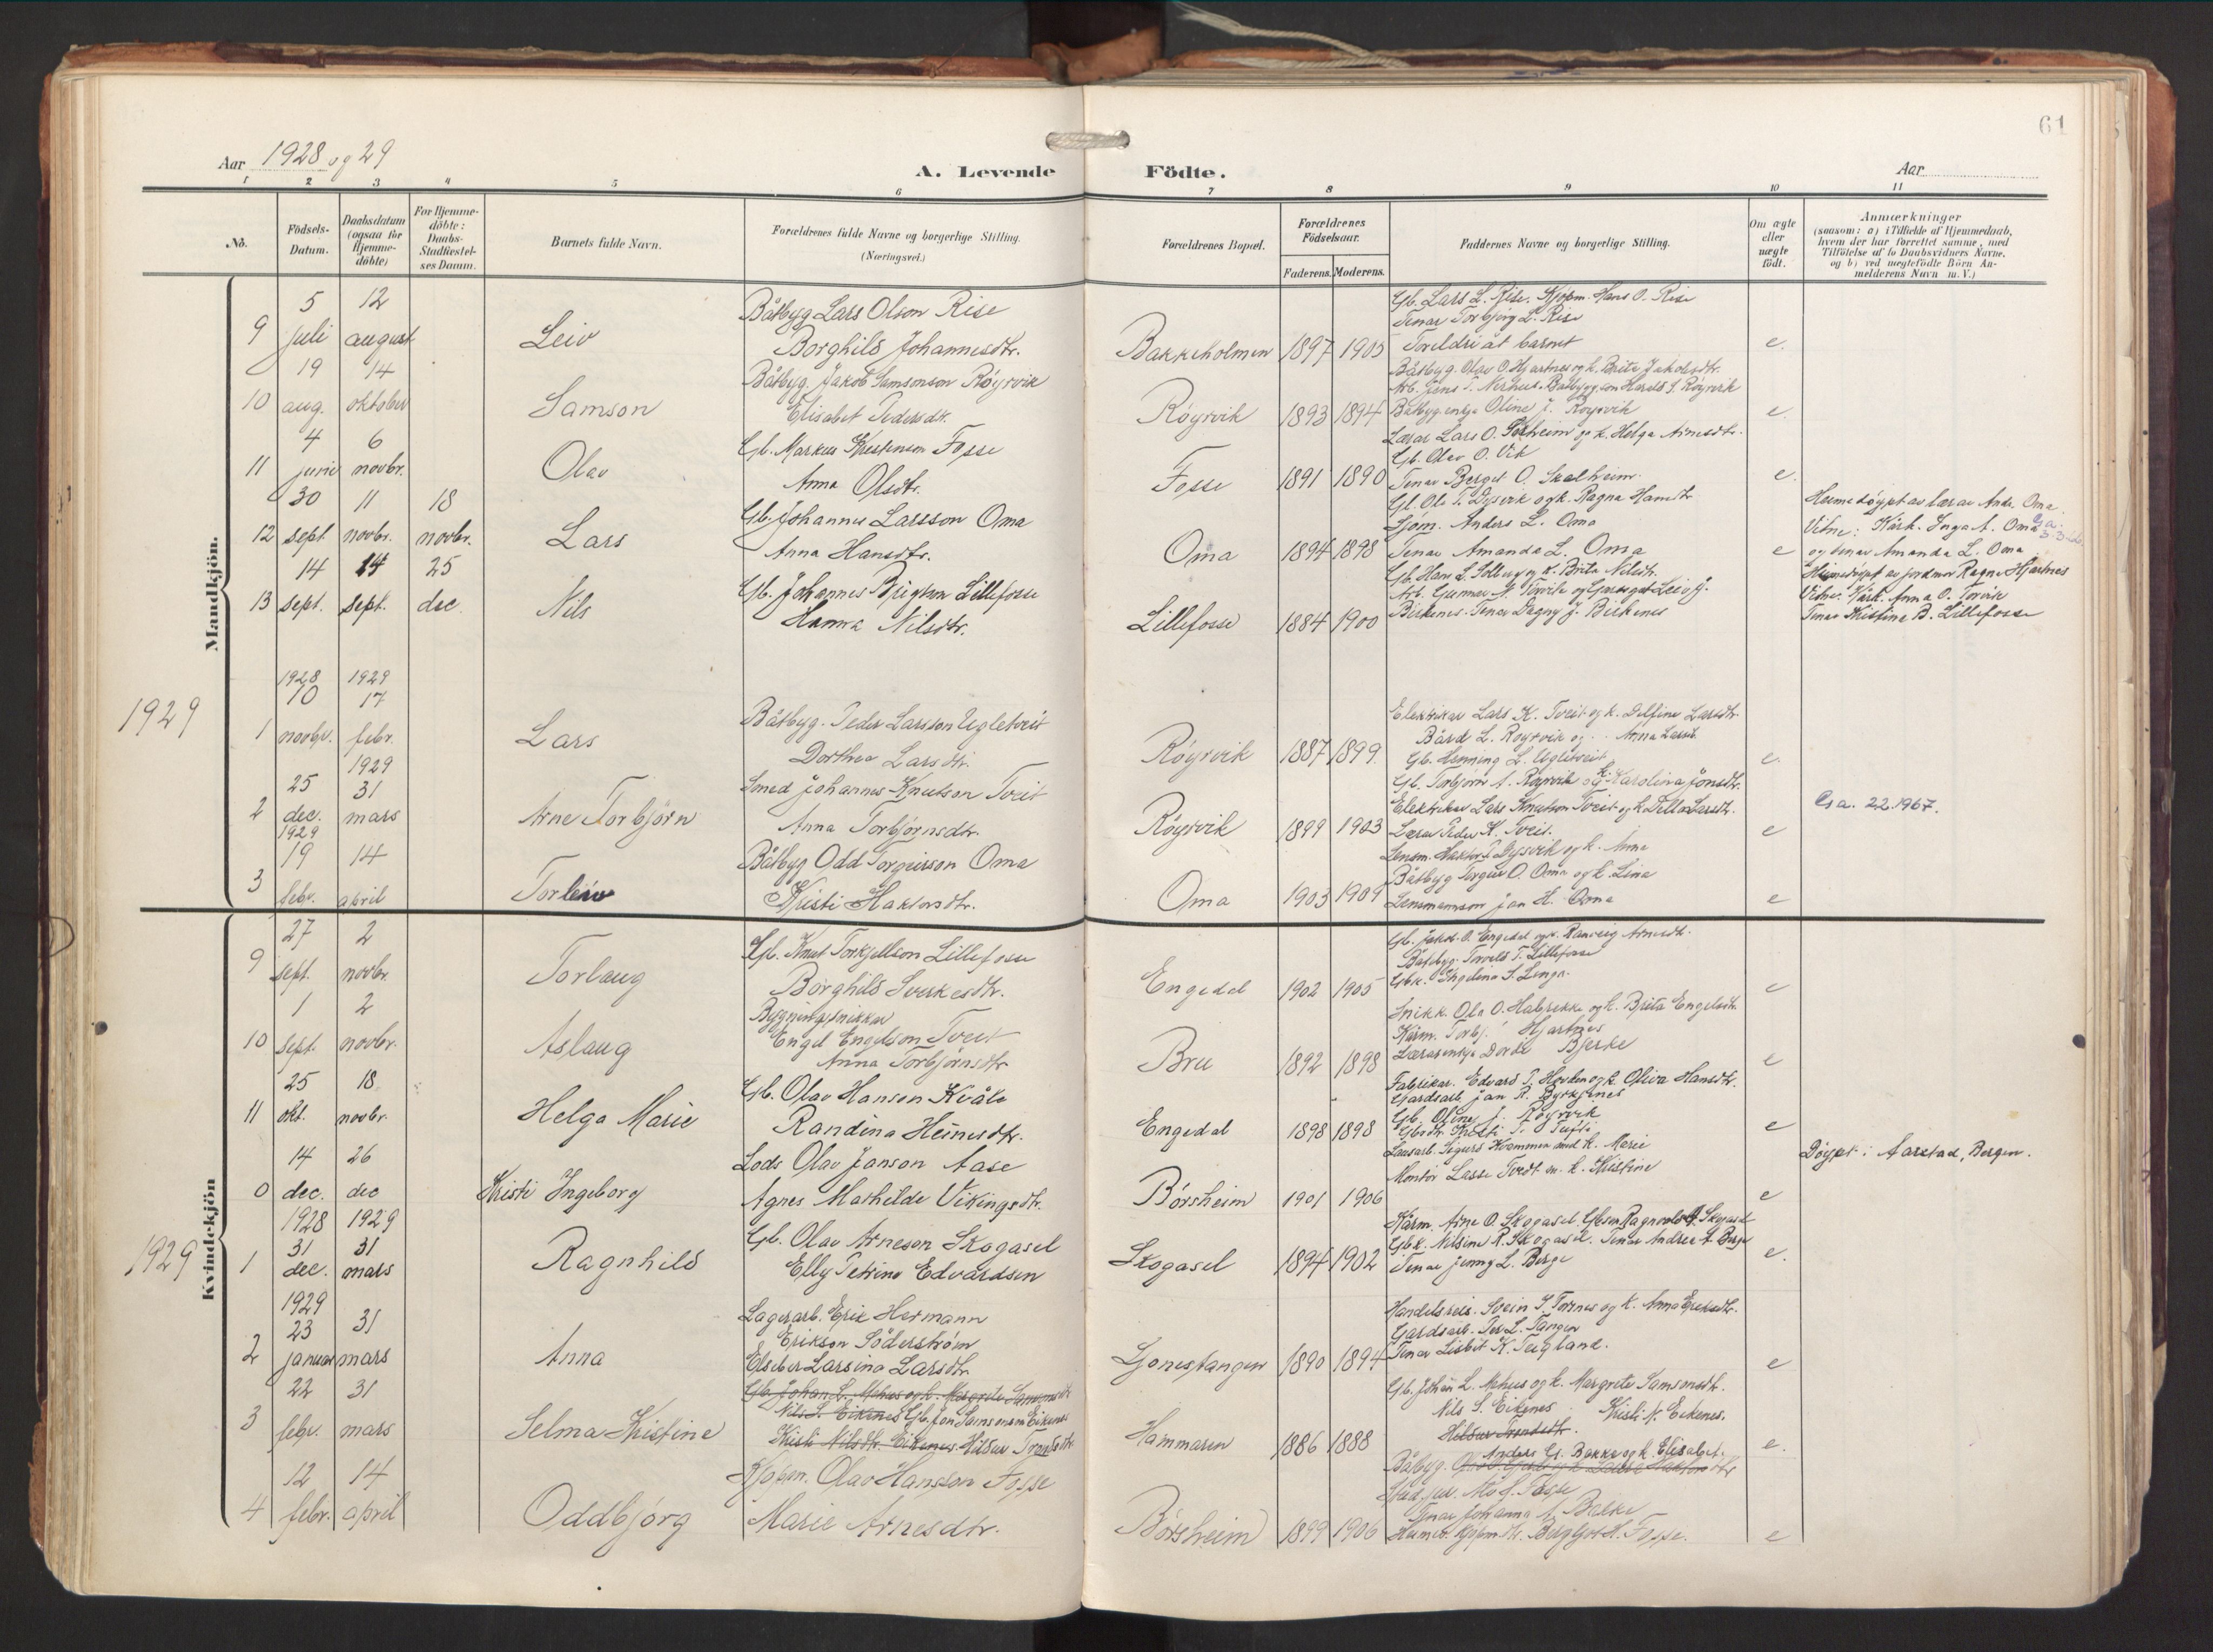 61
Aar 1928 og 29
A. Levende Födte.
Aar
1 2 3 4 5 6 7 8 9 10 11
No.
Födsels-Datum.
Daabsdatum (ogsaa for Hjemme-döbte)
For Hjemme-döbte: Daabs-Stadfæstel-ses Datum.
Barnets fulde Navn.
Forældrenes fulde Navne og borgerlige Stilling. (Næringsvei.)
Forældrenes Bopæl.
Forældrenes Födselsaar.
Faderens. Moderens.
Faddernes Navne og borgerlige Stilling.
Om ægte eller uægte födt.
Anmærkninger
(saasom: a) i Tilfælde af Hjemmedaab,
hvem der har forrettet samme, med
Tilföielse af to Daabsvidners Navne,
og b) ved uægtefödte Börn An-
melderens Navn m. V.)
Mandkjön.
9 5 juli 12 august Leiv
Båtbyg Lars Olson Rise
Borghild Johannesdtr.
Bakkeholmen 1897 1905
Gb. Lars L. Rise. Kjøpm. Hans O. Rise
Tenar Torbjørg L. Rise
Foreldri åt barnet
e.
10 19 aug. 14 oktober Samson
Båtbyg. Jakob Samsonson Røyrvik
Elisabet Pedersdtr.
Røyrvik 1893 1894
Båtbyg. Olav O. Hjartnes og k. Brita Jakobsdtr.
Båtbyg.enkja Oline J. Røyrvik
e.
11 4 juni 6 novbr. Olav
Gb. Markus Kristenson Fosse
Anna Olsdtr.
Fosse 1891 1890
Lærar Lars O. og k. Helga Arnesdtr.
Gb. Olav O. Vik
Tenar Berget O.
e.
12 30 sept 11 novbr. 18 novbr. Lars
Gb. Johannes Larsson Oma
Anna Hansdtr.
Oma 1894 1898
Gb. Ole T. Dysvik og k. Ragna Hansdtr
Sjøm. Anders L. Oma
Tenar Amanda L. Oma
e
Heimedøypt av lærar Andr. Oma.
Vitne: Kårk. Inga A. Oma
og tenar Amanda L. Oma
13 14 sept. 14 sept. 25 dec. Nils
Gb. Johannes Lillefosse
Hanna Nilsdtr.
Lillefosse 1884 1900
Gb. Hans L. og k. Brita Nilsdtr.
Birkenes. Tenar Dagny J. Birkenes
Heimedøypt av jordmor Ragna Hjartnes
Vitne: Kårk. Anna O. Torvik
Tenar Kristina B. Lillefosse
1929
1928 1929
1 10 novbr. 17 febr. Lars
Båtbyg. Peder Larsson Ugletveit
Dorthea Larsdtr.
Røyrvik 1887 1899.
Elektrikar Lars K. Tveit og k. Delfine Larsdtr.
Bård L. Røyrvik og Anna Larsd.
Gb. Henning L. Ugletveit
e.
1929
2 25 dec. 31 mars Arne Torbjørn
Smed Johannes Knutson Tveit
Anna Torbjørnsdtr.
Røyrvik 1899 1903
Gb. Torbjørn A. Røyrvik og k. Karolina Jonsdtr.
Elektrikar Lars Knutson Tveit og k. Larsdtr.
Lærar Peder K. Tveit.
e
Ga. 22.1967.
1929
3 19 febr. 14 april Torleiv
Båtbyg Odd Torgeirson Oma
Kristi Håkonsdtr.
Oma 1903 1909
Lensm. Håkon T. Dysvik og k. Anna
Båtbyg Torgeir O. Oma og k. Lina
Lensmannson Jan H. Oma
e
Kvindekjön
9 27 sept. 2 novbr. Torlaug
Gb. Knut Torkjellson Lillefosse
Borghild Sverkesdtr.
Engedal 1902 1905
Gb. Jakob O. Engedal og k. Rannveig Arnesdtr.
Båtbyg. Torvald T. Lillefosse
Gbk. Engelina S. Linga.
e
10 1 sept. 2 novbr. Aslaug
Bygningssnikkar
Engel Engelson Tveit
Anna Torbjørnsdtr
Bru 1892 1898
Snikk. Ola O. Halsrekke og k. Brita Engelsdtr.
Kårm. Torbj. Hjartnes
Lærarenkja Dorte Bjerke
e
11 25 okt. 18 novbr. Helga Marie
Gb. Olav Hanson Kvåle
Randina Heinesdtr.
Engedal 1898 1898
Fabrikar. Edvard T. Hovden og k. Oliva Hansdtr.
Gardsarb. Jan R. Byrkjenes
Gb. Oline J. Røyrvik
e
0 14 dec. 26 dec Kristi Ingeborg
Lods Olav Janson Aase
Agnes Mathilde Vikingsdtr.
Børsheim 1901 1906
Lausarb. Sigurd Kvammen med k. Marie
Montør Lasse Tvedt m. k. Kristine
e
Døypt i Aarstad, Bergen.
1929
1928 1929
1 31 dec. 31 mars Ragnhild
Gb. Olav Arneson Skogasel
Elly Petrina Edvardsen
Skogasel 1894 1902
Kårm. Arne O. Skogasel. Gbson Ragnvald A. Skogasel
Gbk. Nilsine R. Skogasel. Tenar Andrea L. Berge
Tenar Jenny L. Berge
e.
1929
2 23 januar 31 mars Anna
Lagerarb. Erik Hermann
Erikson Söderström
Elseber Larsina Larsdtr.
Ljonestangen 1890 1894
Handelsreis. Svein S. Tornes og k. Anna Eriksdtr.
Gardsarb. Per L. Tangen
Tenar Lisbet K. Teigland.
e
3 22 febr. 31 mars Selma Kristine
Gb. Johan L. Mehus og k. Margrete Samsonsdtr
Nils S. Eikenes Gb. Jon Samsonson Eikenes
Kristi Nilsdtr. Eikenes. Hildur Trondsdtr
Hammaren 1886 1888
Gb. Johan L. Mehus og k. Margrete Samsonsdtr.
Nils S. Eikenes Kristi N. Eikenes.
Hildur Trondsdtr.
e.
4 12 febr. 14 april Oddbjørg
Kjøpm. Olav Hansson Fosse
Marie Arnesdtr.
Børsheim 1899 1906
Båtbyg. Anders G. Bakke og k. Elisabet.
Tenar Johanna A. Bakke
Fosse.
e